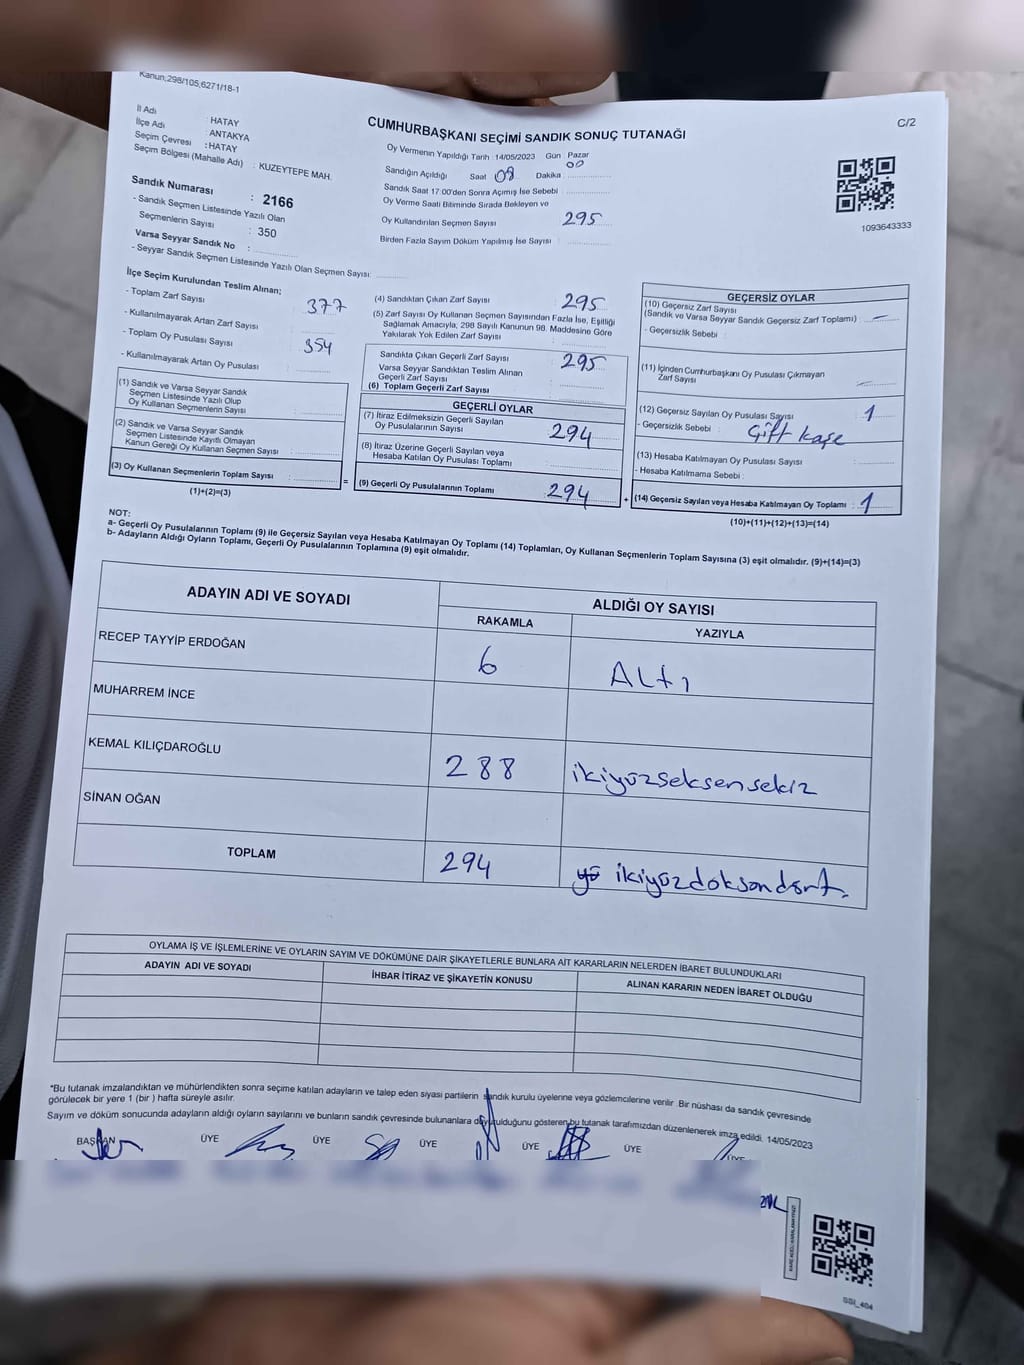 Kanun;298/105,6271/18-1
C/2
İl Adı : HATAY
İlçe Adı : ANTAKYA
Seçim Çevresi : HATAY
Seçim Bölgesi (Mahalle Adı) : KUZEYTEPE MAH.
CUMHURBAŞKANI SEÇİMİ SANDIK SONUÇ TUTANAĞI
Oy Vermenin Yapıldığı Tarih :14/05/2023 Gün Pazar
Sandığın Açıldığı Saat 08 Dakika : 00
Sandık Saat 17:00'den Sonra Açımış İse Sebebi :
Oy Verme Saati Bitiminde Sırada Bekleyen ve
Oy Kullandırılan Seçmen Sayısı 295
Birden Fazla Sayım Döküm Yapılmış İse Sayısı :
1093643333
Sandık Numarası : 2166
- Sandık Seçmen Listesinde Yazılı Olan
Seçmenlerin Sayısı : 350
Varsa Seyyar Sandık No :
- Seyyar Sandık Seçmen Listesinde Yazılı Olan Seçmen Sayısı:
İlçe Seçim Kurulundan Teslim Alınan;
- Toplam Zarf Sayısı 377
- Kullanılmayarak Artan Zarf Sayısı :
- Toplam Oy Pusulası Sayısı 354
- Kullanılmayarak Artan Oy Pusulası :
(1) Sandık ve Varsa Seyyar Sandık
Seçmen Listesinde Yazılı Olup
Oy Kullanan Seçmenlerin Sayısı :
(2) Sandık ve Varsa Seyyar Sandık
Seçmen Listesinde Kayıtlı Olmayan
Kanun Gereği Oy Kullanan Seçmen Sayısı :
(3) Oy Kullanan Seçmenlerin Toplam Sayısı :
(1)+(2)=(3)
(4) Sandıktan Çıkan Zarf Sayısı 295
(5) Zarf Sayısı Oy Kullanan Seçmen Sayısından Fazla İse, Eşitliği
Sağlamak Amacıyla; 298 Sayılı Kanunun 98. Maddesine Göre
Yakılarak Yok Edilen Zarf Sayısı :
Sandıkta Çıkan Geçerli Zarf Sayısı 295
Varsa Seyyar Sandıktan Teslim Alınan
Geçerli Zarf Sayısı :
(6) Toplam Geçerli Zarf Sayısı :
GEÇERLİ OYLAR
(7) İtiraz Edilmeksizin Geçerli Sayılan
Oy Pusulalarının Sayısı 294
(8) İtiraz Üzerine Geçerli Sayılan veya
Hesaba Katılan Oy Pusulası Toplamı :
= (9) Geçerli Oy Pusulalarının Toplamı : 294 +
GEÇERSİZ OYLAR
(10) Geçersiz Zarf Sayısı
(Sandık ve Varsa Seyyar Sandık Geçersiz Zarf Toplamı) : —
- Geçersizlik Sebebi :
(11) İçinden Cumhurbaşkanı Oy Pusulası Çıkmayan
Zarf Sayısı : —
(12) Geçersiz Sayılan Oy Pusulası Sayısı : 1
- Geçersizlik Sebebi : Çift kaşe
(13) Hesaba Katılmayan Oy Pusulası Sayısı :
- Hesaba Katılmama Sebebi :
(14) Geçersiz Sayılan veya Hesaba Katılmayan Oy Toplamı : 1
(10)+(11)+(12)+(13)=(14)
NOT:
a- Geçerli Oy Pusulalarının Toplamı (9) ile Geçersiz Sayılan veya Hesaba Katılmayan Oy Toplamı (14) Toplamları, Oy Kullanan Seçmenlerin Toplam Sayısına (3) eşit olmalıdır. (9)+(14)=(3)
b- Adayların Aldığı Oyların Toplamı, Geçerli Oy Pusulalarının Toplamına (9) eşit olmalıdır.
ADAYIN ADI VE SOYADI ALDIĞI OY SAYISI
RAKAMLA YAZIYLA
RECEP TAYYİP ERDOĞAN 6 Altı
MUHARREM İNCE
KEMAL KILIÇDAROĞLU 288 ikiyüzseksensekiz
SİNAN OĞAN
TOPLAM 294 ikiyüzdoksandört.
OYLAMA İŞ VE İŞLEMLERİNE VE OYLARIN SAYIM VE DÖKÜMÜNE DAİR ŞİKAYETLERLE BUNLARA AİT KARARLARIN NELERDEN İBARET BULUNDUKLARI
ADAYIN ADI VE SOYADI İHBAR İTİRAZ VE ŞİKAYETİN KONUSU ALINAN KARARIN NEDEN İBARET OLDUĞU
*Bu tutanak imzalandıktan ve mühürlendikten sonra seçime katılan adayların ve talep eden siyasi partilerin sandık kurulu üyelerine veya gözlemcilerine verilir .Bir nüshası da sandık çevresinde
görülecek bir yere 1 (bir ) hafta süreyle asılır.
Sayım ve döküm sonucunda adayların aldığı oyların sayılarını ve bunların sandık çevresinde bulunanlara duyurulduğunu gösteren bu tutanak tarafımızdan düzenlenerek imza edildi. 14/05/2023
BAŞKAN ÜYE ÜYE ÜYE ÜYE ÜYE ÜYE